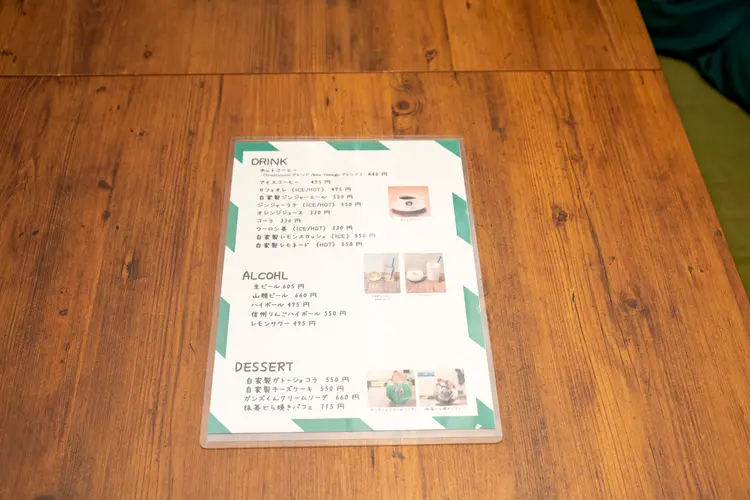 DRINK
ホットコーヒー
440 円
アイスコーヒー 495 円
カフェオレ (ICE/HOT) 495 円
自家製ジンジャーエール 550 円
ジンジャーラテ (ICE/HOT) 550 円
オレンジジュース 330 円
コーラ 330 円
ウーロン茶 (ICE/HOT) 330 円
自家製レモンスカッシュ (ICE) 550 円
自家製レモネード (HOT) 550 円
ALCOHL
生ビール 605 円
山麓ビール 660 円
ハイボール 495 円
信州りんごハイボール 550 円
レモンサワー 495 円
DESSERT
自家製ガトーショコラ 550 円
自家製チーズケーキ 550 円
ガンズくんクリームソーダ 660 円
抹茶どら焼きパフェ 715 円